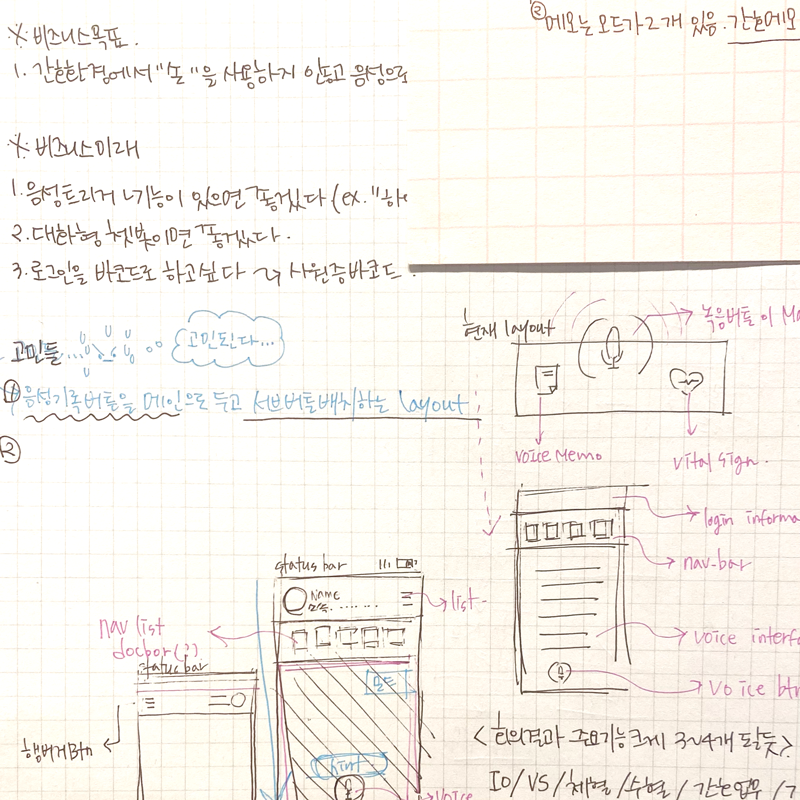 ※ 비즈니스목표.
1. 간호환경에서 "손"을 사용하지 않고 음성으로
② 메모는 모드가 2개 있음. 간호메모
※ 비즈니스미래
1. 음성트리거 기능이 있으면 좋겠다 (ex. "하이
2. 대화형 챗봇이면 좋겠다.
3. 로그인을 바코드로 하고싶다 → 사원증바코드
고민들
고민된다...
① 음성기록버튼을 메인으로 두고 서브버튼배치하는 layout
②
현재 layout
녹음버튼이 Ma
voice Memo
vital sign.
login informa
nav-bar
voice interfa
voice btn
status bar
NAME
list
nav list
docbar(?)
status bar
햄버거Btn
voice
<회의결과 주요기능크게 3~4개 될듯>
IO/VS/체혈/수혈/간호업무/